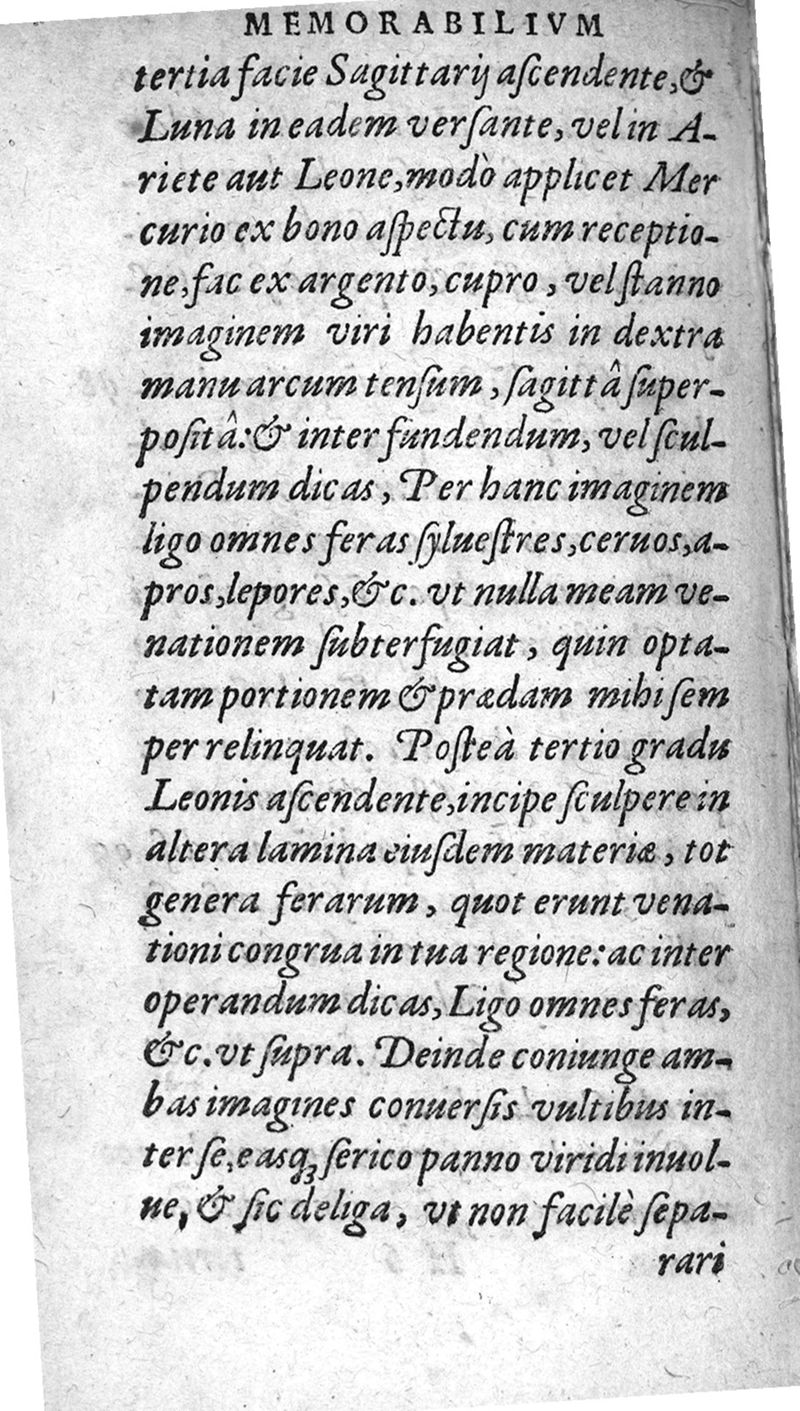 MEMORABILIVM
tertia facie Sagittarij aſcendente, &
Luna in eadem verſante, vel in A-
riete aut Leone, modò applicet Mer
curio ex bono aſpectu, cum receptio-
ne, fac ex argento, cupro, vel ſtanno
imaginem viri habentis in dextra
manu arcum tenſum, ſagittâ ſuper-
poſitâ: & inter fundendum, vel ſcul-
pendum dicas, Per hanc imaginem
ligo omnes feras ſylueſtres, ceruos, a-
pros, lepores, &c. vt nulla meam ve-
nationem ſubterfugiat, quin opta-
tam portionem & prædam mihi ſem
per relinquat. Poſteà tertio gradu
Leonis aſcendente, incipe ſculpere in
altera lamina eiuſdem materiæ, tot
genera ferarum, quot erunt vena-
tioni congrua in tua regione: ac inter
operandum dicas, Ligo omnes feras,
&c. vt ſupra. Deinde coniunge am-
bas imagines conuerſis vultibus in-
ter ſe, easq; ſerico panno viridi inuol-
ue, & ſic deliga, vt non facilè ſepa-
rari